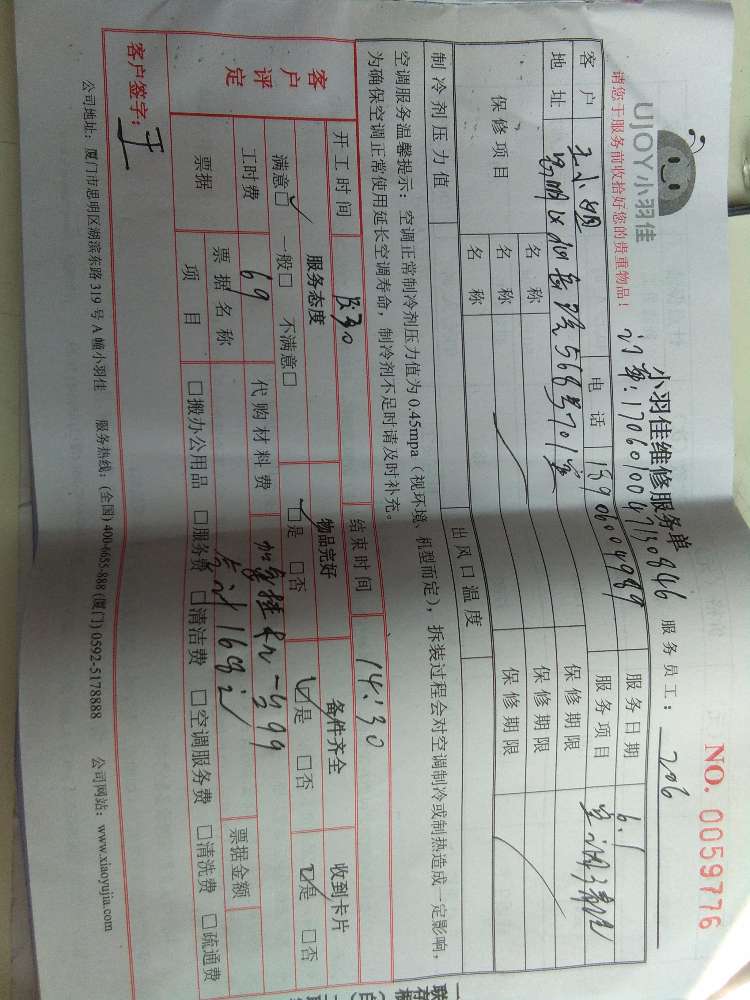 UJOY小羽佳
小羽佳维修服务单
NO. 0059776
请您于服务前收拾好您的贵重物品！
服务员工： 206
客户 王小姐 电话 18906004989 服务日期 6.1
地址 思明区 568号701室 服务项目 空调清洗
保修项目 名称 保修期限
名称 保修期限
名称 保修期限
制冷剂压力值 出风口温度
空调服务温馨提示：空调正常制冷剂压力值为 0.45mpa（视环境、机型而定），拆装过程会对空调制冷或制热造成一定影响，
为确保空调正常使用延长空调寿命，制冷剂不足时请及时补充。
开工时间 结束时间 14:30
客户评定 服务态度 物品完好 备件齐全 收到卡片
满意□ 一般□ 不满意□ □是 □否 □是 □否 □是 □否
工时费 69 代购材料费 加室挂机一台99
共计168元
票据 票据名称 票据金额
项目 □搬办公用品 □服务费 □清洁费 □空调服务费 □清洗费 □疏通费
客户签字：王
公司地址：厦门市思明区湖滨东路 319 号 A 幢小羽佳 服务热线：(全国) 400-6655-888 (厦门) 0592-5178888 公司网站：www.xiaoyujia.com